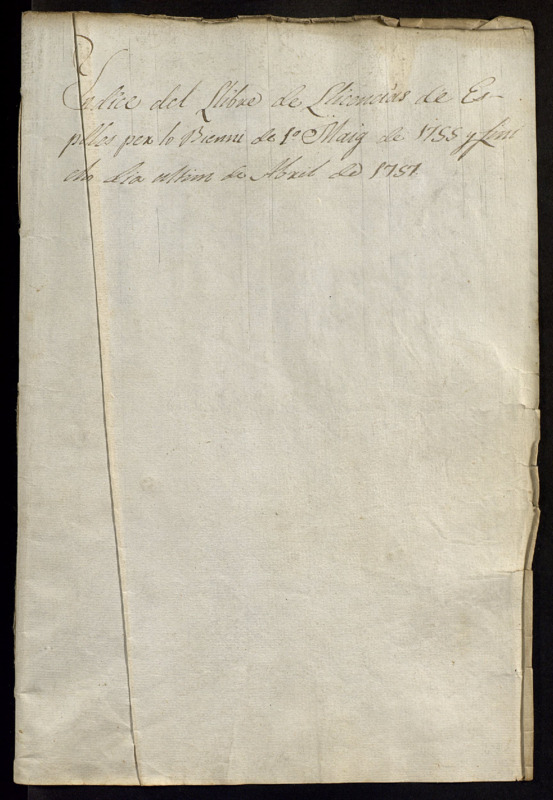 Yndice del Llibre de Llicencias de Es-
polles per lo Bienni de 1º Maig de 1755 y fini
cho dia ultim de Abril de 1757